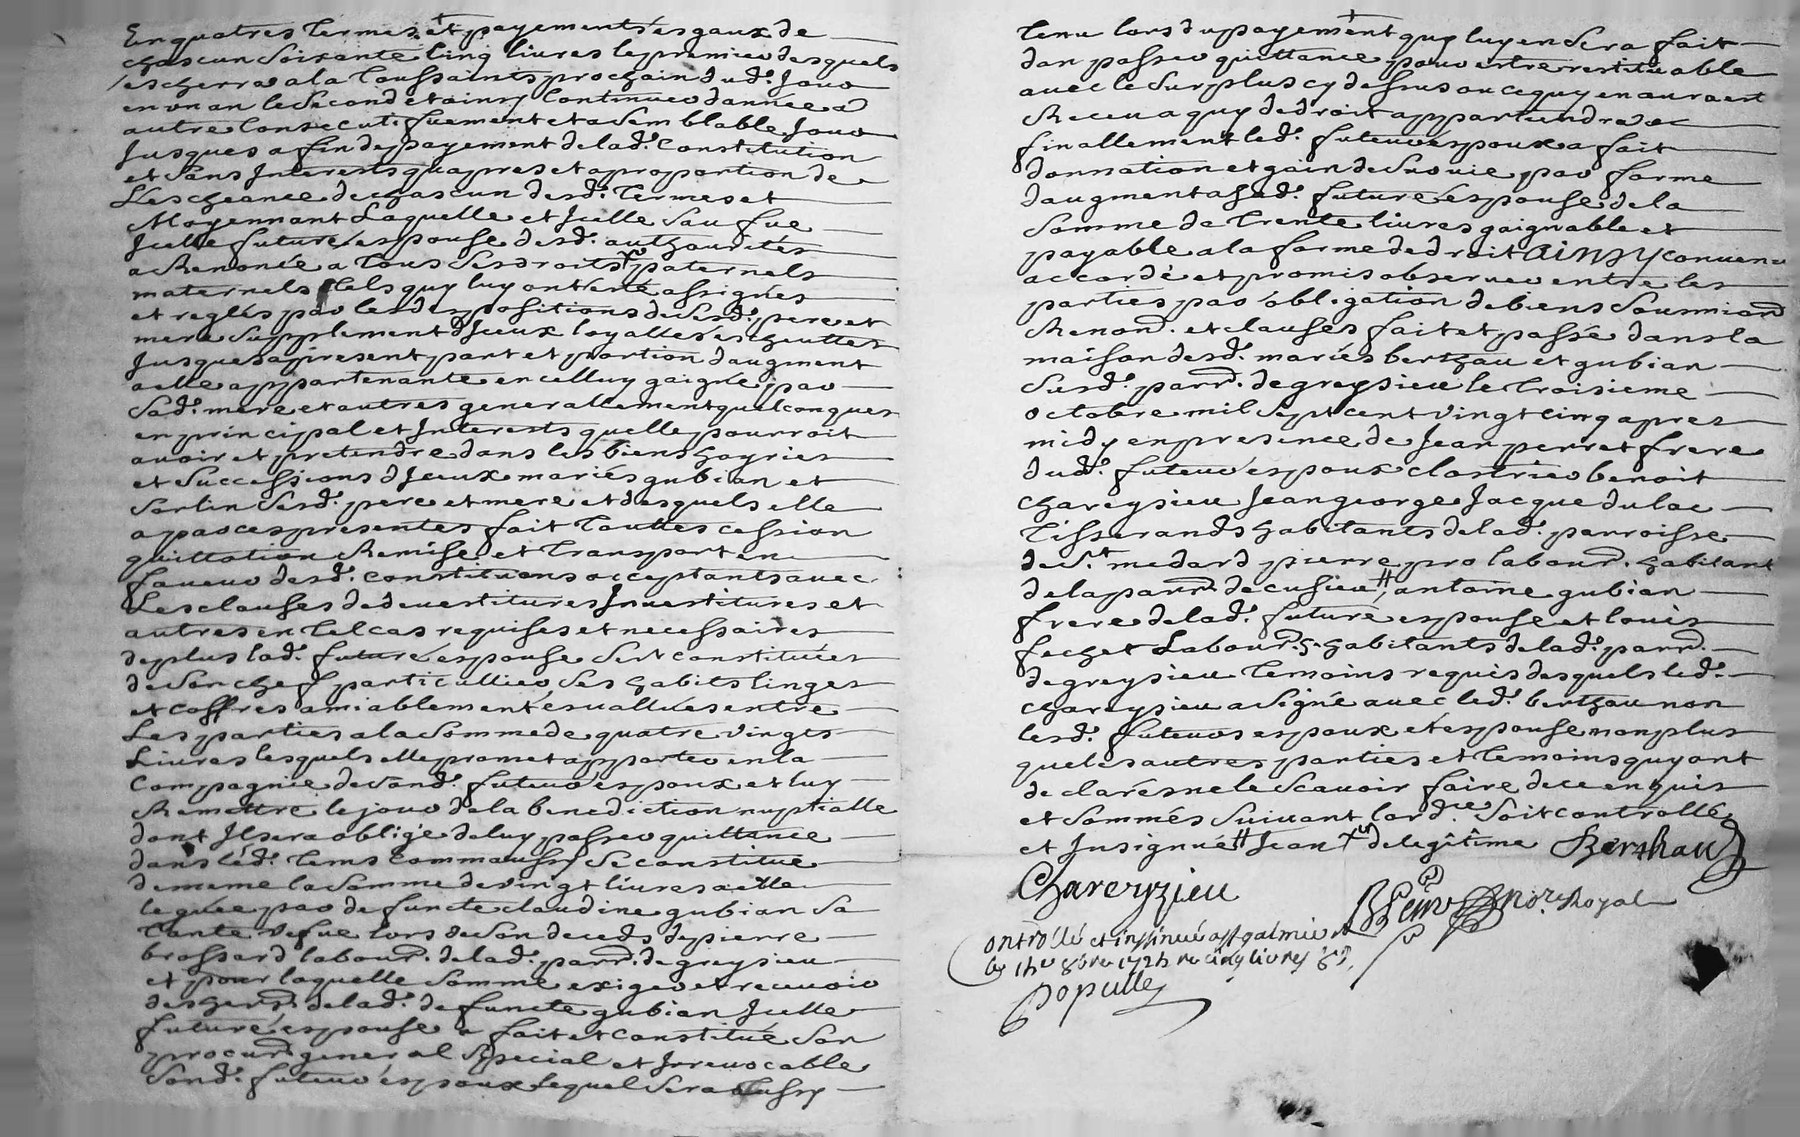 En quatres termes et payements esgaux de
chascun soixante cinq livres le premier desquels
escherra a la toussaints prochain dud. jour
en un an le second et ainsy continuer d'année a
autre consecutifvement et a semblable jour
jusques a fin de payement de lad. constitution
et sans interests qu'apres et a proportion de
l'escheance de chascun desd. termes et
moyennant laquelle et icelle sauf que
icelle future espouse desd. authorités
a renoncé a tous ses droits paternels
maternels tels quy luy ont esté assignés
et reglés par les dispositions de sesd. pere et
mere supplement d'iceux loyalles escheuttes
jusques a present part et portion d'augment
a elle appartenante en celluy gaigné par
sad. mere et autres generallement quelconques
en principal et interests qu'elle pourroit
avoir et pretendre dans les biens hoyries
et successions d'iceux mariés gubian et
sarlin sesd. pere et mere et desquels elle
a par ces presentes fait touttes cession
quittation remise et transport en
faveur desd. constituans acceptants avec
les clauses de devestitures investitures et
autres en tel cas requises et necessaires
de plus lad. future espouse s'est constituées
de son chef particullier ses habits linges
et coffres amiablement esvallués entre
les parties a la somme de quatre vingts
livres lesquels elle promet apporter en la
compagnie de sond. futeur espoux et luy
remettre le jour de la benediction nuptialle
dont il sera obligé de luy passer quittance
dans led. tems comm'aussy se constitue
de meme la somme de vingt livres a elle
leguée par defuncte claudine gubian sa
tante vefue lors de son deceds de pierre
brossard labour. de lad. parr. de greysieu
et pour laquelle somme exiger et recevoir
des herit. de lad. defuncte gubian icelle
future espouse a fait et constitué son
procur. general special et irrevocable
sond. futeur espoux lequel sera aussy
tenu lors du payement quy luy en sera fait
d'en passer quittance pour estre restituable
avec le surplus cy dessus ou ce quy en aura esté
receu a quy de droit appartiendra et
finallement led. futeur espoux a fait
donnation et gain de survie par forme
d'augment a sad. future espouse de la
somme de trente livres gaignable et
payable a la forme de droit ainsy convenu
accordé et promis observer entre les
parties par obligation de biens soumiond
renond. et clauses fait et passé dans la
maison desd. mariés berthau et gubian
susd. parr. de greysieu le troisieme
octobre mil sept cent vingt cinq apres
midy en presence de Jean perret frere
dud. futeur espoux clostrier benoit
chareysieu Jean george Jacque dulac
tisserands habitants de lad. parroisse
de St. medard pierre pro labour. habitant
de la parr. de cusieu # antoine gubian
frere de lad. future espouse et louis
fechet labour.s habitants de lad. parr.
de greysieu temoins requis desquels led.
chareysieu a signé avec led. berthau non
lesd. futeurs espoux et espouse non plus
que les autres parties et temoins quy ont
declarés ne le scavoir faire de ce enquis
et sommés suivant l'ord.ce soit controllé
et insignué # Jean + de legitime Berthau
Chareyzieu
no.re Royal
Controllé et insinué a st galmier
livres
Populle